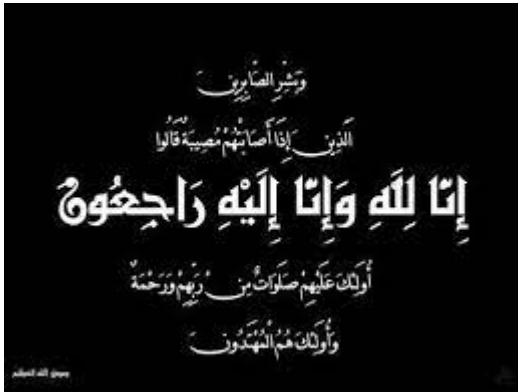 وَبَشِّرِ الصَّابِرِينَ
الَّذِينَ إِذَا أَصَابَتْهُمْ مُصِيبَةٌ قَالُوا
إِنَّا لِلَّهِ وَإِنَّا إِلَيْهِ رَاجِعُونَ
أُولَئِكَ عَلَيْهِمْ صَلَوَاتٌ مِنْ رَبِّهِمْ وَرَحْمَةٌ
وَأُولَئِكَ هُمُ الْمُهْتَدُونَ
صدق الله العظيم